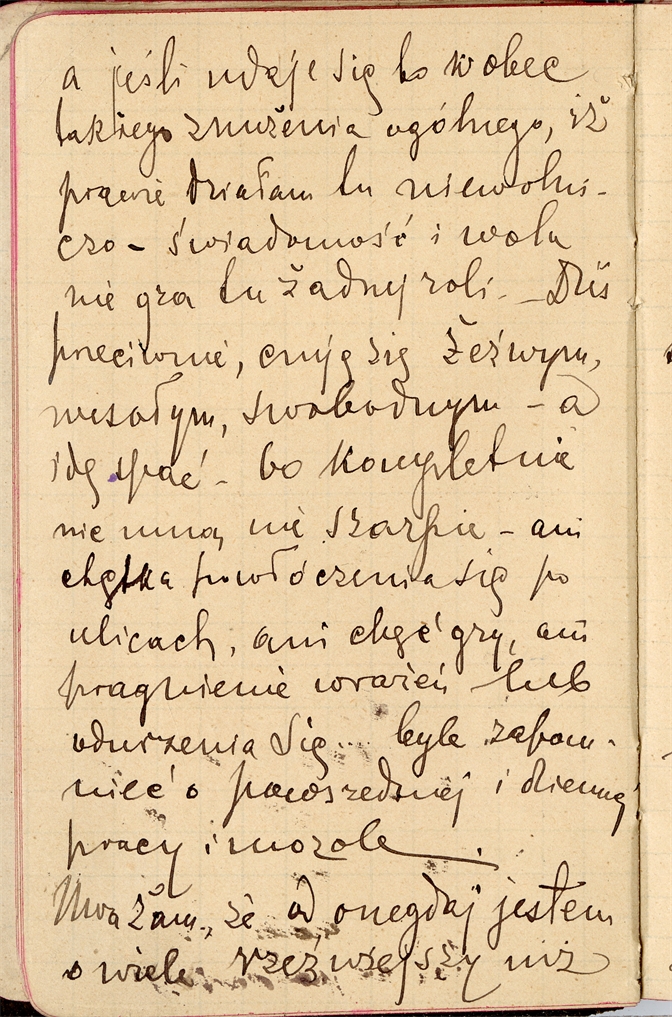 a jeśli udaje się to wobec
takiego znużenia ogólnego, iż
prawie działam tu niewolni-
czo - świadomość i wola
nie gra tu żadnej roli. - Dziś
przeciwnie, czuję się żeźwym,
wesołym, swobodnym - a
idę spać - bo kompletnie
nic mną nie szarpie - ani
chętka powłóczenia się po
ulicach, ani chęć gry, ani
pragnienie wrażeń lub
odurzenia się... byle zapom-
nieć o powszedniej i dziennej
pracy i mozole.
Uważam, że od onegdaj jestem
o wiele rzeźwiejszy niż